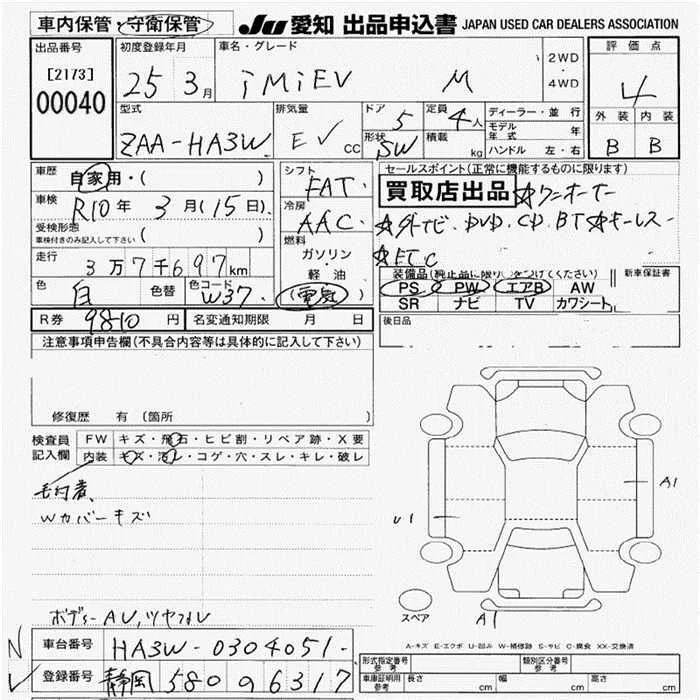 車内保管・守衛保管
JU 愛知 出品申込書 JAPAN USED CAR DEALERS ASSOCIATION
出品番号
[2173]
00040
初度登録年月
25 3月
車名・グレード
iMiEV M
2WD
・
4WD
評価点
4
外装 内装
B B
型式
ZAA-HA3W
排気量
EV CC
ドア 5
形状 SW
定員 4人
積載 kg
ディーラー・並行
モデル年式 年
ハンドル 左・右
車歴 自家用・( )
車検 R10年 3月(15日)
受検形態
車検付きのみ記入して下さい ( )
走行 3万7千697km
色 白 色替 色コード W37
シフト FAT
冷房 AAC
燃料
ガソリン
・
軽油
(電気)
セールスポイント(正常に機能するものに限ります)
買取店出品 ☆ワンオーナー
☆外ナビ.DVD.CD.BT☆キーレス
☆ETC
装備品(純正品に限り○をつけてください)
PS PW エアB AW
SR ナビ TV カワシート
新車保証書
R券 9810円 名変通知期限 月 日
後日品
注意事項申告欄(不具合内容等は具体的に記入して下さい)
修復歴 有 (箇所
検査員記入欄
FW キズ・飛石・ヒビ割・リペア跡・X要
内装 キズ・汚レ・コゲ・穴・スレ・キレ・破レ
Wカバーキズ
ボデーAU,ツヤナシ
A1
U1
スペア
A1
A-キズ E-エクボ U-凹み W-補修跡 S-サビ C-腐食 XX-交換済
車台番号 HA3W-0304051-
登録番号 静岡 580 か 6317
型式指定番号 参考
類別区分番号 参考
車庫証明用 参考 長さ cm 幅 cm 高さ cm